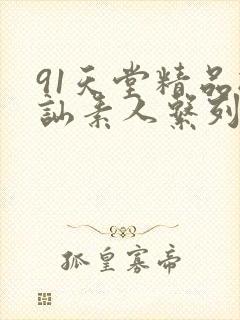 91天堂精品
訕素人繫列
孤皇寡帝